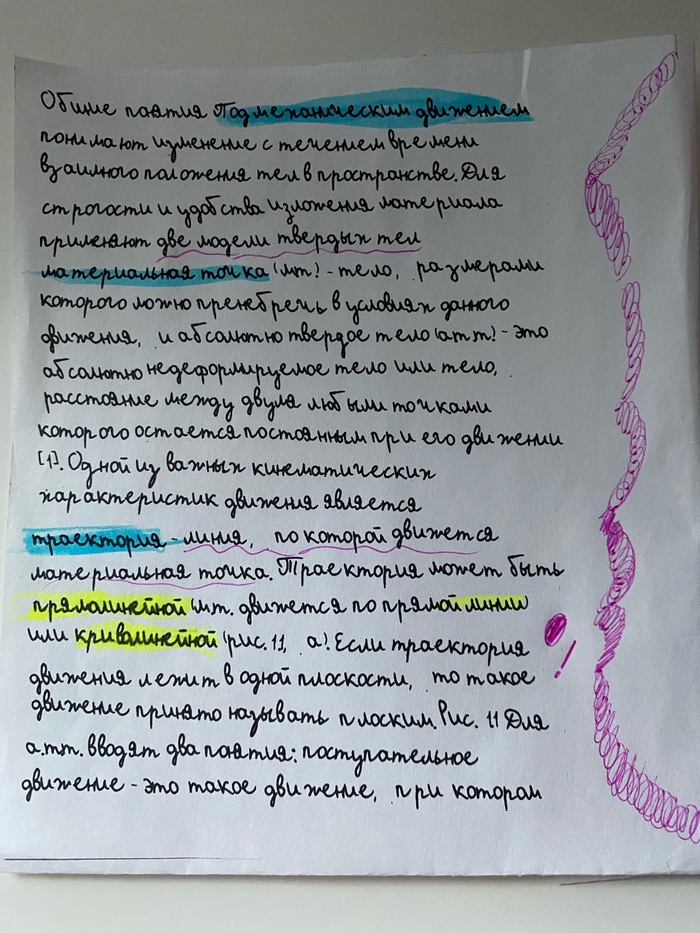 Общие понятия Под механическим движением
понимают изменение с течением времени
взаимного положения тел в пространстве. Для
строгости и удобства изложения материала
применяют две модели твердых тел
материальная точка (мт) - тело, размерами
которого можно пренебречь в условиях данного
движения, и абсолютно твердое тело (атт) - это
абсолютно недеформируемое тело или тело,
расстояние между двумя любыми точками
которого остается постоянным при его движении
[1]. Одной из важных кинематических
характеристик движения является
траектория - линия, по которой движется
материальная точка. Траектория может быть
прямолинейной (мт. движется по прямой линии)
или криволинейной (рис. 1.1, а). Если траектория
движения лежит в одной плоскости, то такое
движение принято называть плоским. Рис. 1.1 Для
а.т.т. вводят два понятия: поступательное
движение - это такое движение, при котором